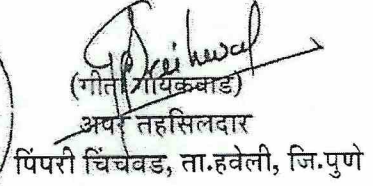 (गीता गायकवाड)
अपर तहसिलदार
पिंपरी चिंचवड, ता.हवेली, जि.पुणे